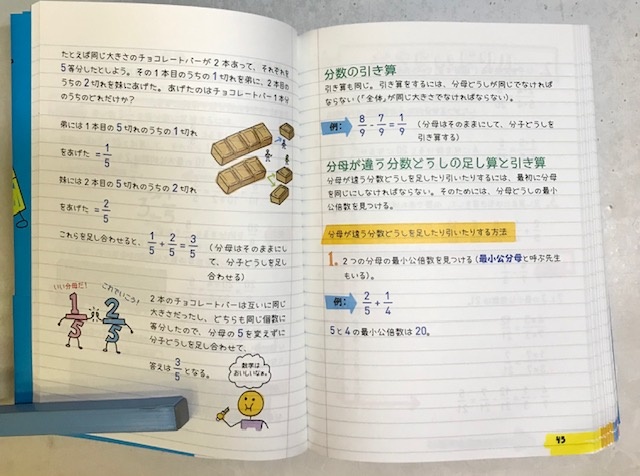 たとえば同じ大きさのチョコレートバーが2本あって、それぞれを
5等分したとしよう。その1本目のうちの1切れを弟に、2本目の
うちの2切れを妹にあげた。あげたのはチョコレートバー1本分
のうちのどれだけか?
弟には1本目の5切れのうちの1切れ
をあげた = 1/5
妹には2本目の5切れのうちの2切れ
をあげた = 2/5
これらを足し合わせると、1/5 + 2/5 = 3/5 (分母はそのままにし
て、分子どうしを足し
合わせる)
いい分母だ!
これでいこう!
1/5
2/5
2本のチョコレートバーは互いに同じ
大きさだったし、どちらも同じ個数に
等分したので、分母の5を変えずに
分子どうしを足し合わせて、
答えは3/5となる。
数学は
おいしいなぁ。
分数の引き算
引き算も同じ。引き算をするには、分母どうしが同じでなければ
ならない(「全体」が同じ大きさでなければならない)。
例: 8/9 - 7/9 = 1/9 (分母はそのままにして、分子どうしを
引き算する)
分母が違う分数どうしの足し算と引き算
分母が違う分数どうしを足したり引いたりするには、最初に分母
を同じにしなければならない。そのためには、分母どうしの最小
公倍数を見つける。
分母が違う分数どうしを足したり引いたりする方法
1. 2つの分母の最小公倍数を見つける(最小公分母と呼ぶ先生
もいる)。
例: 2/5 + 1/4
5と4の最小公倍数は20。
43